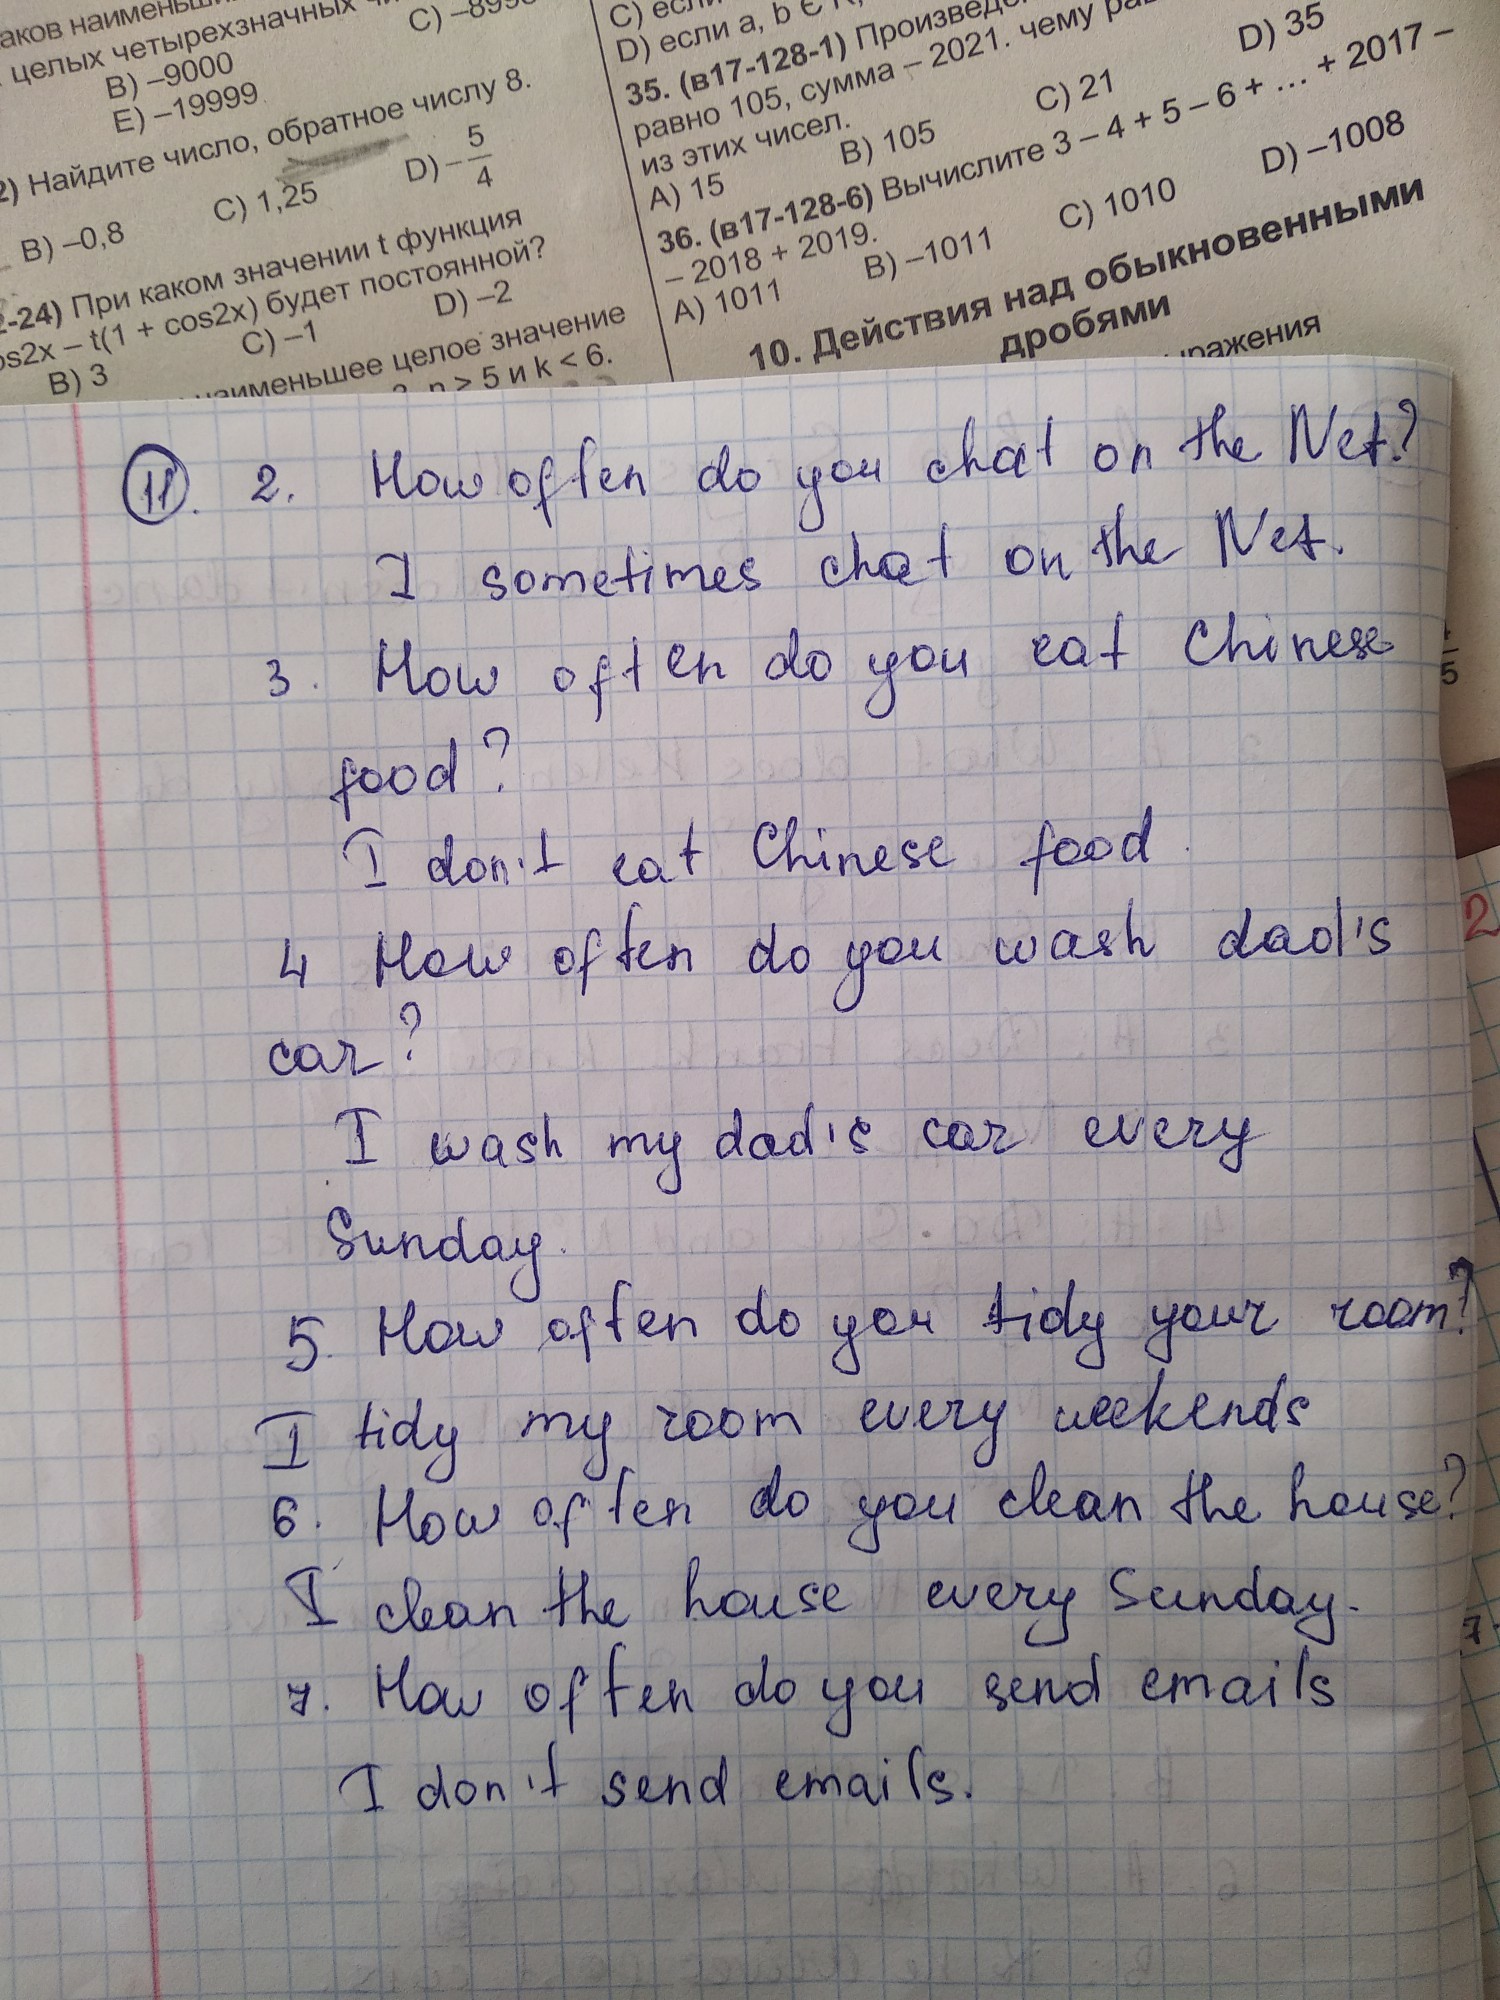 целых четырехзначных
C) –899
B) –9000
E) –19999
2) Найдите число, обратное числу 8.
B) –0,8
C) 1,25
D) –5/4
2-24) При каком значении t функция
os2x – t(1 + cos2x) будет постоянной?
B) 3
C) –1
D) –2
наименьшее целое значение
n > 5 и k < 6.
C) если
D) если a, b ∈ R,
35. (в17-128-1) Произведе
равно 105, сумма – 2021. чему
из этих чисел.
A) 15
B) 105
C) 21
D) 35
36. (в17-128-6) Вычислите 3 – 4 + 5 – 6 + ... + 2017 –
– 2018 + 2019.
A) 1011
B) –1011
C) 1010
D) –1008
10. Действия над обыкновенными
дробями
11. 2. How often do you chat on the Net?
I sometimes chat on the Net.
3. How often do you eat Chinese
food?
I don't eat Chinese food.
4 How often do you wash dad's
car?
I wash my dad's car every
Sunday.
5. How often do you tidy your room?
I tidy my room every weekends
6. How often do you clean the house?
I clean the house every Sunday.
7. How often do you send emails
I don't send emails.